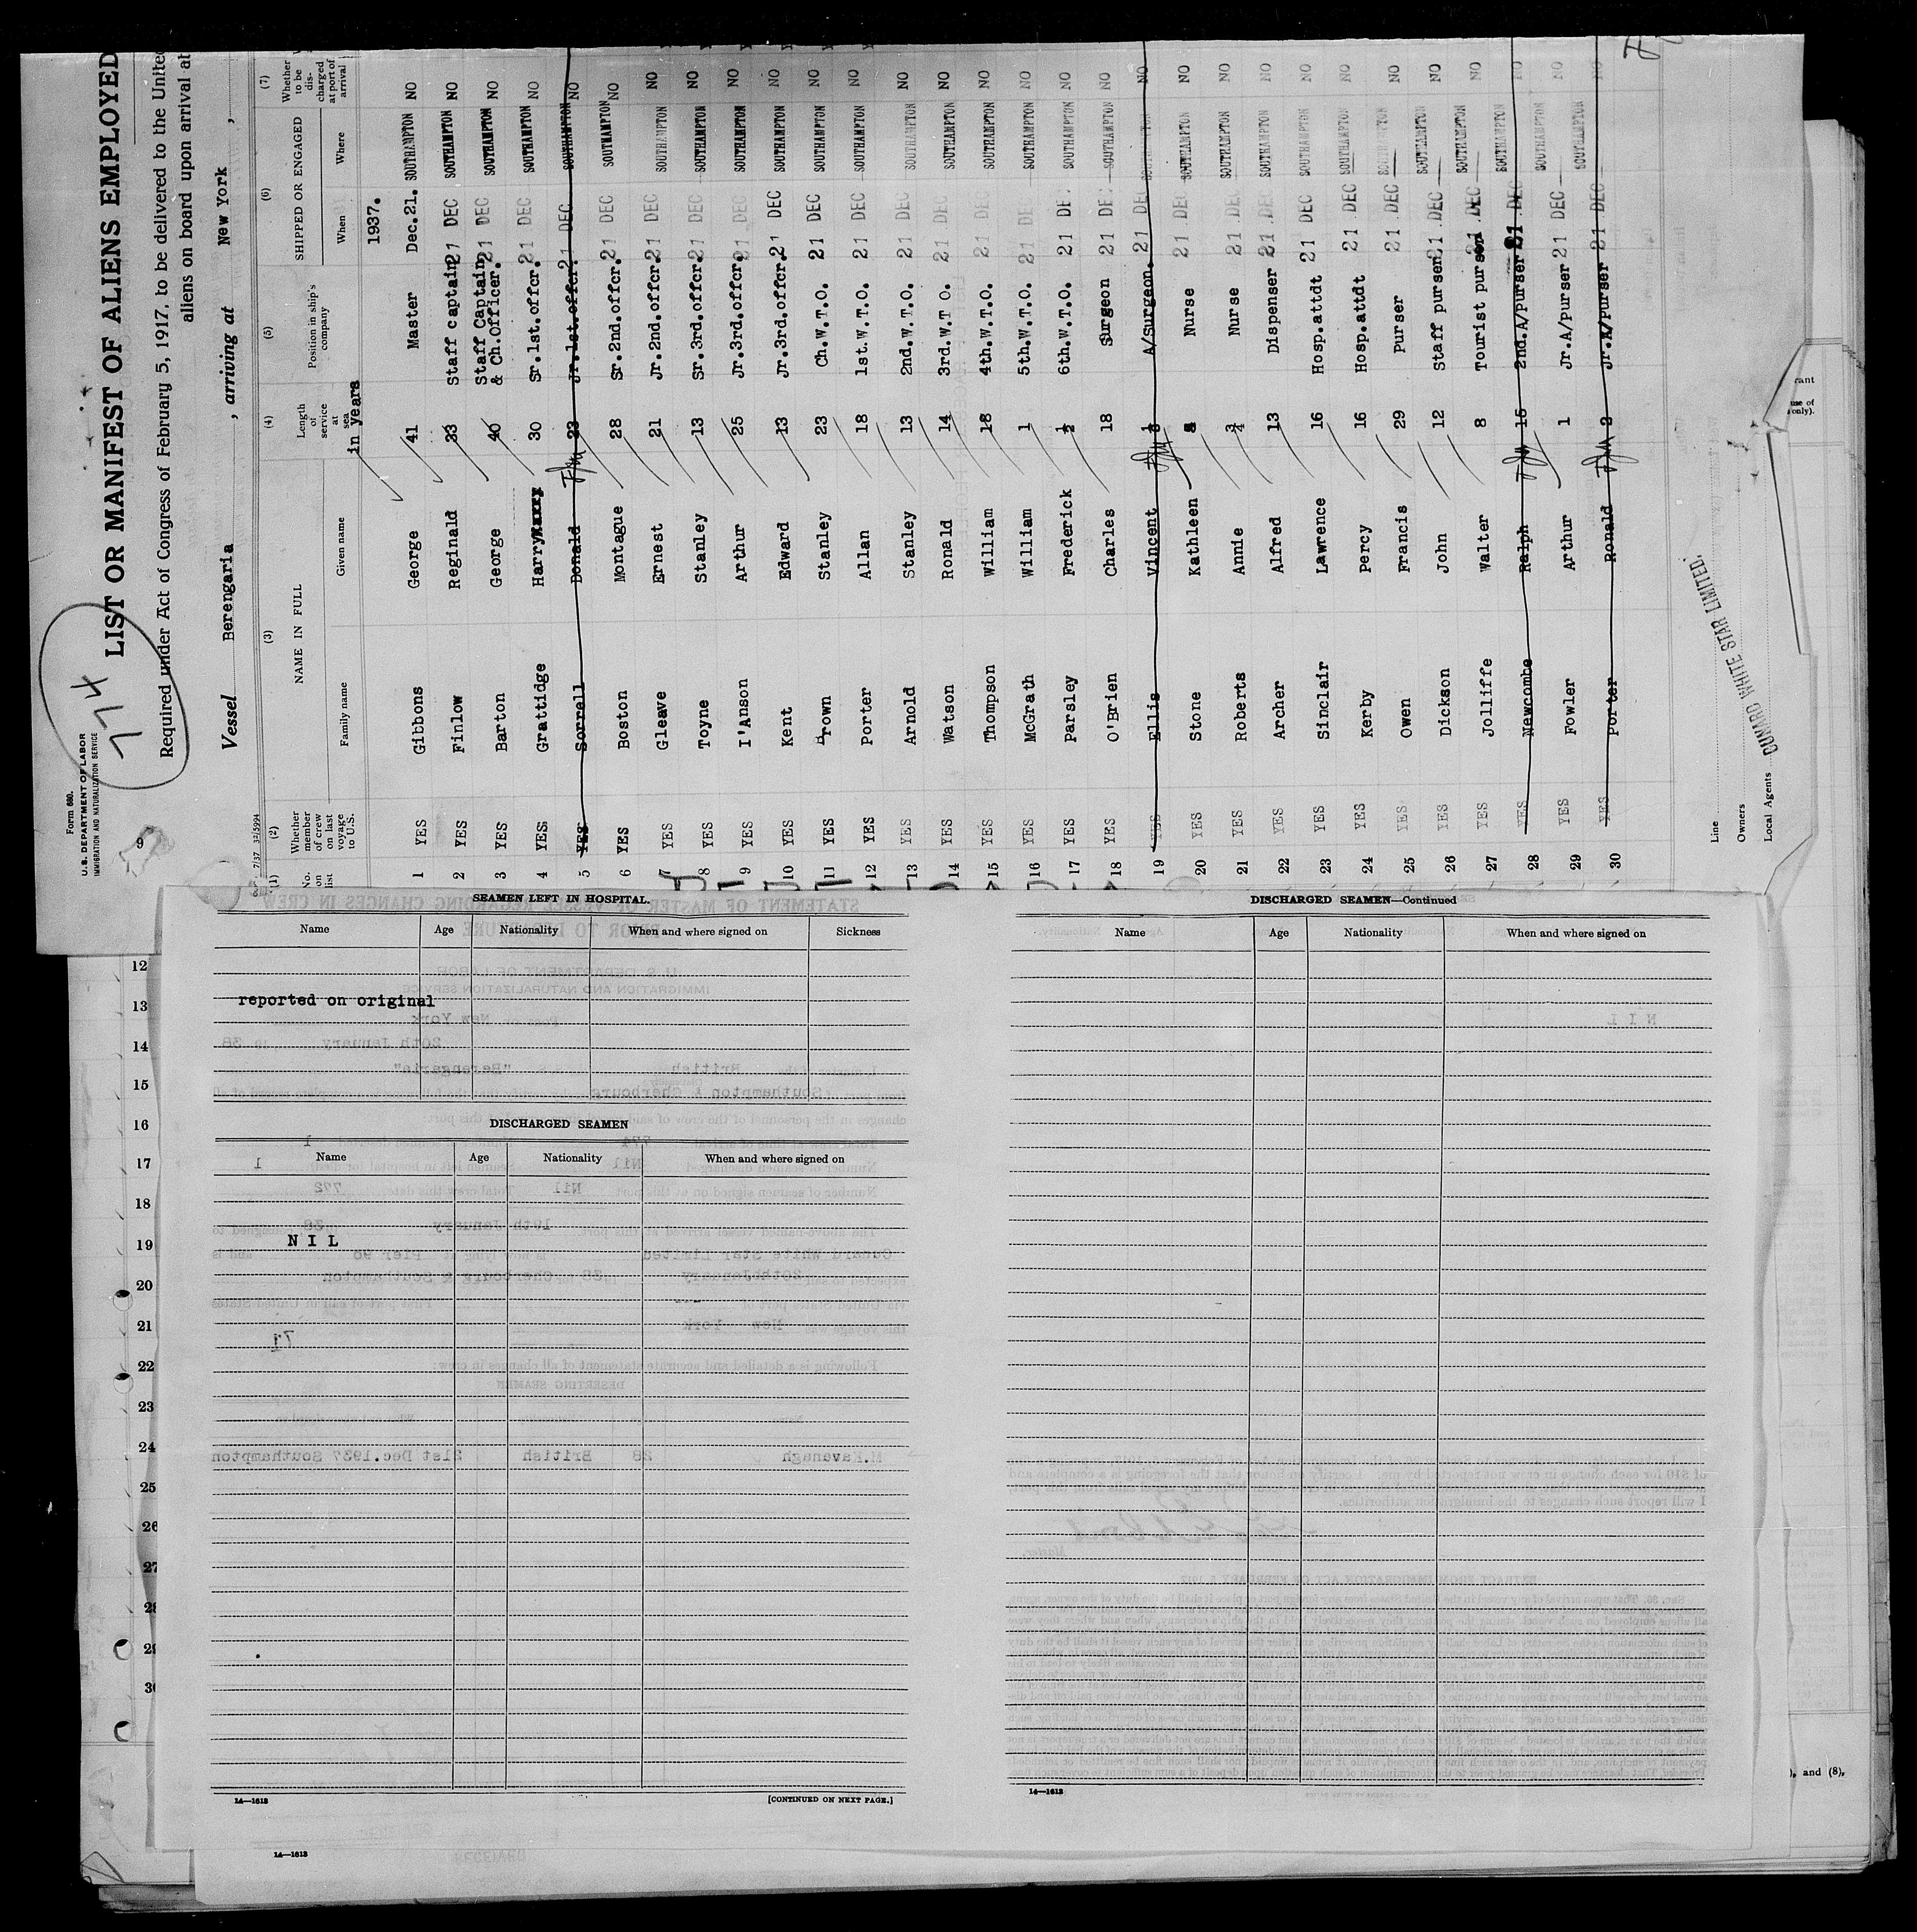 Form 680.
U.S. DEPARTMENT OF LABOR
IMMIGRATION AND NATURALIZATION SERVICE
9
774
LIST OR MANIFEST OF ALIENS EMPLOYED
Required under Act of Congress of February 5, 1917, to be delivered to the United
aliens on board upon arrival at
Vessel Berengaria , arriving at New York ,
7/37 32/5994
(1) (2) (3) (4) (5) (6) (7)
No. on list
Whether member of crew on last voyage to U.S.
NAME IN FULL
Family name Given name
Length of service at sea in years
Position in ship's company
SHIPPED OR ENGAGED
When Where
Whether to be discharged at port of arrival
1937.
1 YES Gibbons George 41 Master Dec.21. SOUTHAMPTON NO
2 YES Finlow Reginald 33 Staff captain 21 DEC SOUTHAMPTON NO
3 YES Barton George 40 Staff Captain & Ch.Officer. 21 DEC SOUTHAMPTON NO
4 YES Grattidge Harry 30 Sr.1st.offcr. 21 DEC SOUTHAMPTON NO
5 YES Sorrell Donald 23 Jr.1st.offcr. 21 DEC SOUTHAMPTON NO
6 YES Boston Montague 28 Sr.2nd.offcr. 21 DEC SOUTHAMPTON NO
7 YES Gleave Ernest 21 Jr.2nd.offcr. 21 DEC SOUTHAMPTON NO
8 YES Toyne Stanley 13 Sr.3rd.offcr. 21 DEC SOUTHAMPTON NO
9 YES I'Anson Arthur 25 Jr.3rd.offcr. 21 DEC SOUTHAMPTON NO
10 YES Kent Edward 13 Jr.3rd.offcr. 21 DEC SOUTHAMPTON NO
11 YES Brown Stanley 23 Ch.W.T.O. 21 DEC SOUTHAMPTON NO
12 YES Porter Allan 18 1st.W.T.O. 21 DEC SOUTHAMPTON NO
13 YES Arnold Stanley 13 2nd.W.T.O. 21 DEC SOUTHAMPTON NO
14 YES Watson Ronald 14 3rd.W.T O. 21 DEC SOUTHAMPTON NO
15 YES Thompson William 18 4th.W.T.O. 21 DEC SOUTHAMPTON NO
16 YES McGrath William 1 5th.W.T.O. 21 DEC SOUTHAMPTON NO
17 YES Parsley Frederick ½ 6th.W.T.O. 21 DEC SOUTHAMPTON NO
18 YES O'Brien Charles 18 Surgeon 21 DEC SOUTHAMPTON NO
19 YES Ellis Vincent A/Surgeon. 21 DEC SOUTHAMPTON NO
20 YES Stone Kathleen Nurse 21 DEC SOUTHAMPTON NO
21 YES Roberts Annie ¾ Nurse 21 DEC SOUTHAMPTON NO
22 YES Archer Alfred 13 Dispenser 21 DEC SOUTHAMPTON NO
23 YES Sinclair Lawrence 16 Hosp.attdt 21 DEC SOUTHAMPTON NO
24 YES Kerby Percy 16 Hosp.attdt 21 DEC SOUTHAMPTON NO
25 YES Owen Francis 29 Purser 21 DEC SOUTHAMPTON NO
26 YES Dickson John 12 Staff purser 21 DEC SOUTHAMPTON NO
27 YES Jolliffe Walter 8 Tourist purser 21 DEC SOUTHAMPTON NO
28 YES Newcombe Ralph 15 2nd.A/Purser 21 DEC SOUTHAMPTON NO
29 YES Fowler Arthur 1 Jr.A/Purser 21 DEC SOUTHAMPTON NO
30 YES Porter Ronald 3 Jr.A/Purser 21 DEC SOUTHAMPTON NO
Line
Owners
Local Agents CUNARD WHITE STAR LIMITED.
12
13
14
15
16
17
18
19
20
21
22
23
24
25
26
27
28
29
30
SEAMEN LEFT IN HOSPITAL.
Name Age Nationality When and where signed on Sickness
reported on original
DISCHARGED SEAMEN
Name Age Nationality When and where signed on
N I L
14—1613
[CONTINUED ON NEXT PAGE.]
14—1613
DISCHARGED SEAMEN—Continued
Name Age Nationality When and where signed on
14—1613
), and (8),